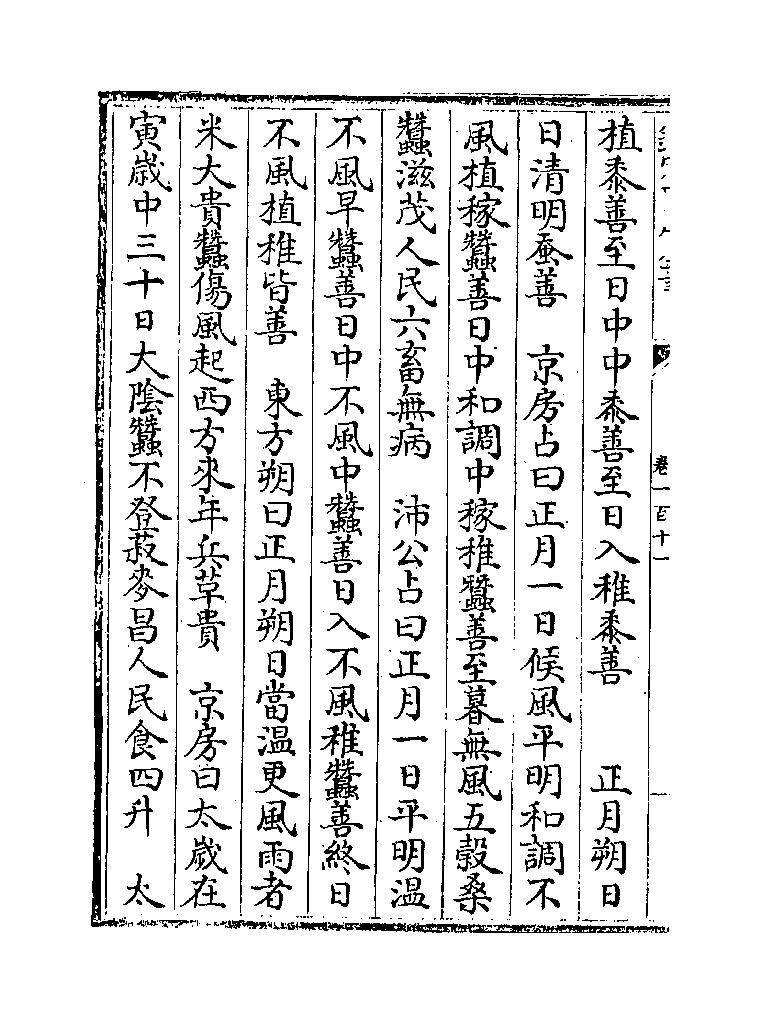 卷一百十一
植黍善至日中中黍善至日入稚黍善　　正月朔日
日清明蚕善　京房占曰正月一日候風平明和調不
風植稼蠶善日中和調中稼稚蠶善至暮無風五穀桑
蠶滋茂人民六畜無病　沛公占曰正月一日平明温
不風早蠶善日中不風中蠶善日入不風稚蠶善終日
不風植稚皆善　東方朔曰正月朔日當温更風雨者
米大貴蠶傷風起西方來年兵草貴　京房曰太歲在
寅歲中三十日大陰蠶不登菽麥昌人民食四升　太